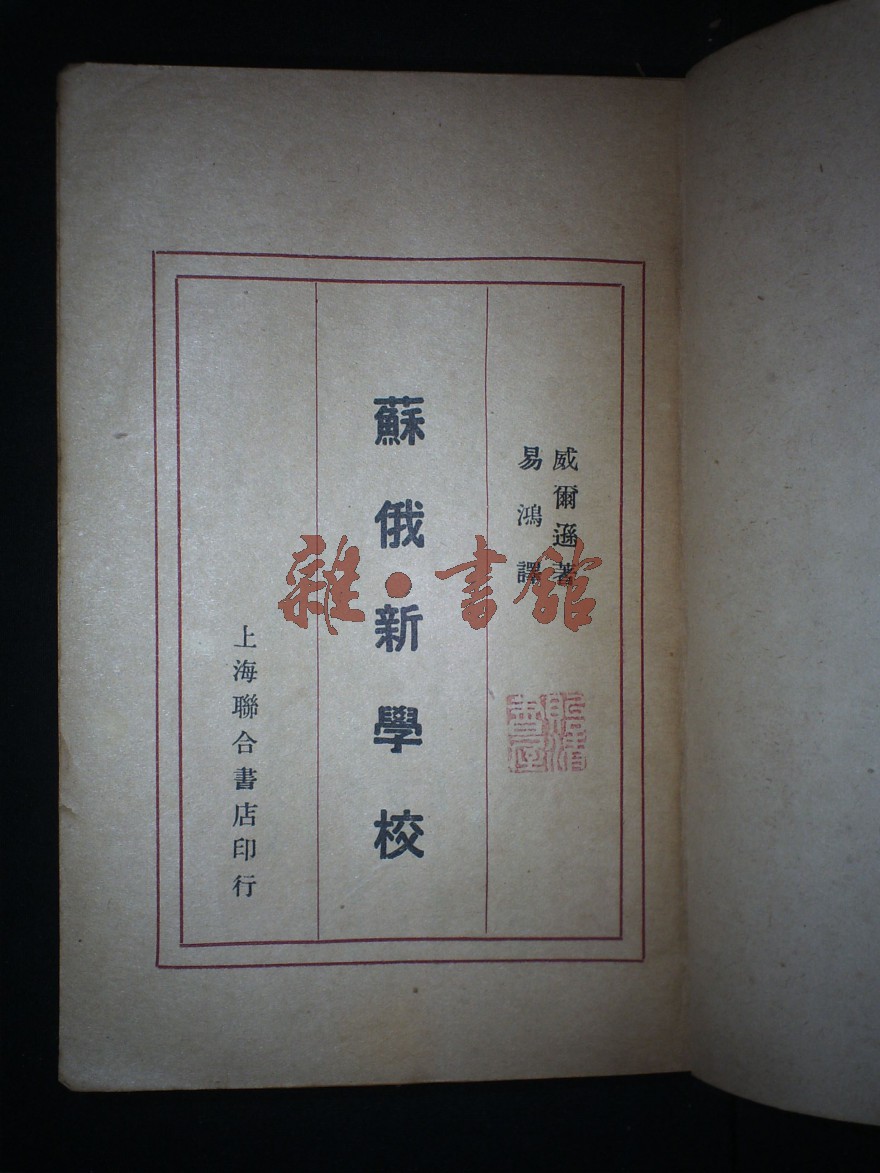 威爾遜著
易鴻譯
蘇俄新學校
上海聯合書店印行
雜·書館